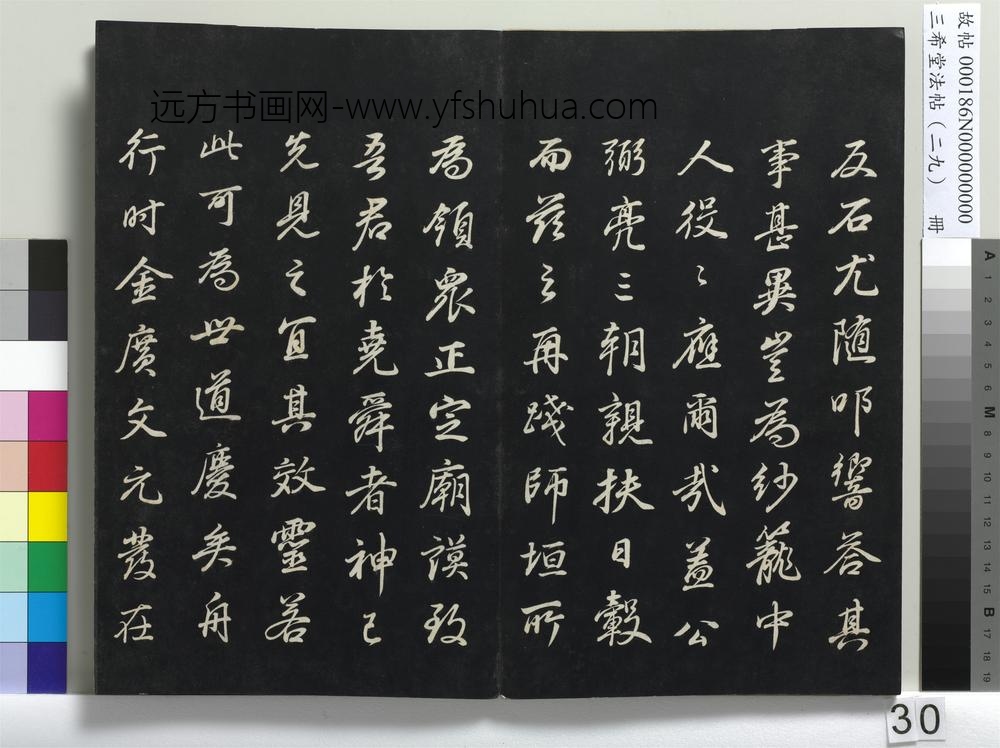 反石尤随叩響荅其
事甚異豈為紗籠中
人役〻應爾哉蓋公
弼亮三朝親扶日轂
而茲之再踐師垣所
為領眾正定廟謨致
吾君於堯舜者神已
先見之宜其效靈若
此可為世道慶矣舟
行时金廣文元發在
远方书画网-www.yfshuhua.com
故帖 000186N000000000
三希堂法帖（二九） 冊
30
A 1 2 3 4 5 6 M 8 9 10 11 12 13 14 15 B 17 18 19